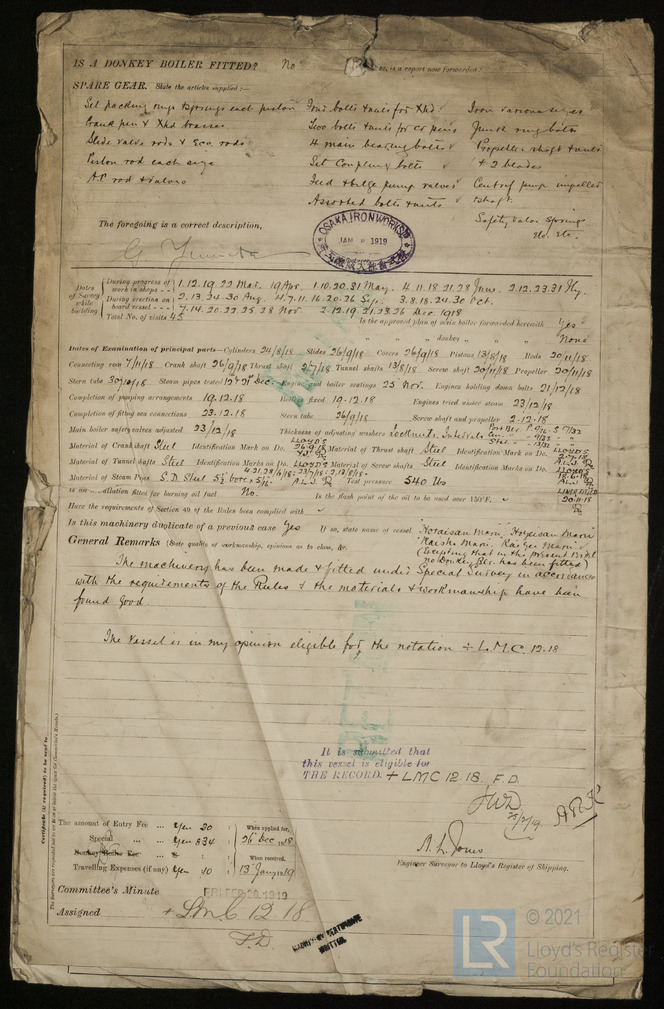 IS A DONKEY BOILER FITTED? No is a report now forwarded?
SPARE GEAR. State the articles supplied:—
Set packing rings & springs each piston Four bolts & nuts for Xhd. Iron various sizes
Crank pin & Xhd brasses Two bolts & nuts for Cr pins Junk ring bolts
Slide valve rods & Ecc. rods 4 main bearing bolts Propeller shaft & nuts
Piston rod each size Set Coupling bolts + 2 blades
A.P. rod & valves Feed & bilge pump valves Centrif pump impeller
Assorted bolts & nuts & shaft.
Safety valve springs
The foregoing is a correct description,
OSAKA IRON WORKS
JAN 1919
Dates of Survey while building
During progress of work in shops - - 1.12.19.22 Mar. 19 Apr. 1.10.20.31 May. 4.11.18.21.28 June. 2.12.23.31 Jly.
During erection on board vessel - - - 2.13.24.30 Aug. 4.7.11.16.20.26 Sep. 3.8.18.24.30 Oct.
Total No. of visits 45 7.14.20.22.25.28 Nov 2.12.19.21.23.26 Dec. 1918
Is the approved plan of main boiler forwarded herewith Yes
" " " donkey " " " None
Dates of Examination of principal parts—Cylinders 24/8/18 Slides 26/9/18 Covers 26/9/18 Pistons 13/8/18 Rods 20/11/18
Connecting rods 7/11/18 Crank shaft 26/9/18 Thrust shaft 2/7/18 Tunnel shafts 13/8/18 Screw shaft 20/11/18 Propeller 20/11/18
Stern tube 30/10/18 Steam pipes tested 21 Dec. Engine and boiler seatings 25 Nov. Engines holding down bolts 21/12/18
Completion of pumping arrangements 19.12.18 Boilers fixed 19.12.18 Engines tried under steam 23/12/18
Completion of fitting sea connections 23.12.18 Stern tube 26/9/18 Screw shaft and propeller 2.12.18
Main boiler safety valves adjusted 23/12/18 Thickness of adjusting washers Locknuts. Intervals
Material of Crank shaft Steel Identification Mark on Do. LLOYDS 26.9.18 Material of Thrust shaft Steel Identification Mark on Do. LLOYDS
Material of Tunnel shafts Steel Identification Marks on Do. LLOYDS Material of Screw shafts Steel Identification Marks on Do. LLOYDS
Material of Steam Pipes S.D. Steel 5½ bore × 5/16 A.L.J. Test pressure 540 lbs
Is an installation fitted for burning oil fuel No. Is the flash point of the oil to be used over 150°F.
20.11.18
Have the requirements of Section 49 of the Rules been complied with
Is this machinery duplicate of a previous case Yes If so, state name of vessel Hotaisan Maru Hozaisan Maru
Raisho Maru. Raizan Maru
(Excepting that in the present vessel
no Donkey Blr. has been fitted)
General Remarks (State quality of workmanship, opinions as to class, &c.
The machinery has been made & fitted under Special Survey in accordance
with the requirements of the Rules & the materials & workmanship have been
found good.
The vessel is in my opinion eligible for the notation + L.M.C. 12.18
It is submitted that
this vessel is eligible for
THE RECORD. + LMC 12.18. F.D.
25/2/19.
Certificate (if required) to be sent to
The amount of Entry Fee ... Yen 20 When applied for,
Special ... Yen 834 26 Dec 1918
Donkey Boiler Fee ... When received,
Travelling Expenses (if any) Yen 10 13 Jany 1919
A. L. Jones
Engineer Surveyor to Lloyd's Register of Shipping.
Committee's Minute FRI. FEB 28 1919
Assigned + LMC 12 18
F.D.
MACHINERY CERTIFICATE
WRITTEN.
LR
© 2021
Lloyd's Register
Foundation